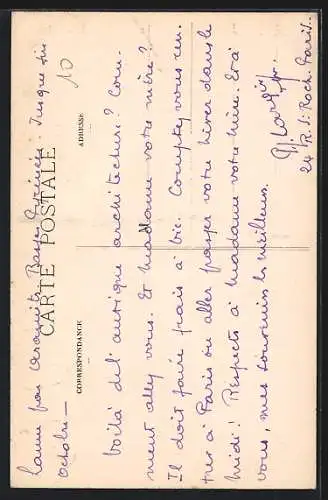 CARTE POSTALE
CORRESPONDANCE
ADRESSE
10
par Basses Pyrénées. Jusque fin
octobre —
Voilà de l'antique architecture? Com-
ment allez vous. Et Madame votre mère?
Il doit faire frais à Vic. Comptez vous ren-
trer à Paris ou aller passer votre hiver dans le
midi? Respects à Madame votre mère. Et à
vous, mes souvenirs les meilleurs.
24 R. St. Roch. Paris.